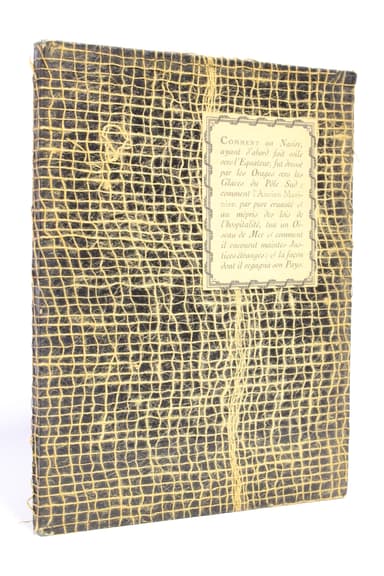 COMMENT un Navire,
ayant d'abord fait voile
vers l'Equateur, fut drossé
par les Orages vers les
Glaces du Pôle Sud :
comment l'Ancien Mari-
nier, par pure cruauté et
au mépris des lois de
l'hospitalité, tua un Oi-
seau de Mer et comment
il encourut maintes Jus-
tices étranges ; et la façon
dont il regagna son Pays.